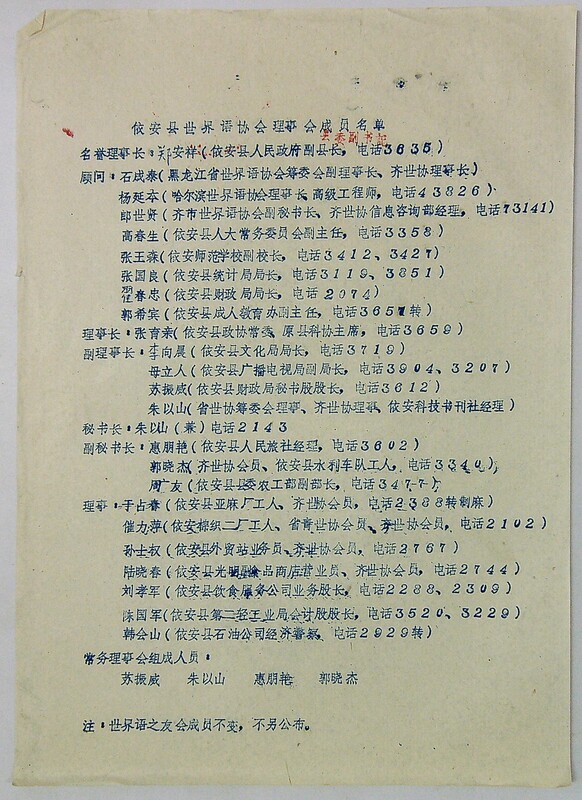 依安县世界语协会理事会成员名单
县委副书记
名誉理事长：郑安祥（依安县人民政府副县长，电话3635）
顾问：石成泰（黑龙江省世界语协会筹委会副理事长、齐世协理事长）
杨延本（哈尔滨世界语协会理事长、高级工程师，电话43826）
郎世贤（齐市世界语协会副秘书长、齐世协信息咨询部经理，电话73141）
高春生（依安县人大常务委员会副主任，电话3358）
张玉森（依安师范学校副校长，电话3412、3427）
张国良（依安县统计局局长，电话3119、3851）
春忠（依安县财政局局长，电话2074）
郭希宾（依安县成人教育办副主任，电话3657转）
理事长：张育亲（依安县政协常委、原县科协主席，电话3659）
副理事长：李向晨（依安县文化局局长，电话3719）
母立人（依安县广播电视局副局长，电话3904、3207）
苏振威（依安县财政局秘书股股长，电话3612）
朱以山（省世协筹委会理事、齐世协理事、依安科技书刊社经理）
秘书长：朱以山（兼）电话2143
副秘书长：惠朋艳（依安县人民旅社经理，电话3602）
郭晓杰（齐世协会员、依安县水利车队工人，电话3340）
周广友（依安县县委农工部副部长，电话3477）
理事：于占春（依安县亚麻厂工人、齐世协会员，电话2388转制麻）
崔力萍（依安棉织二厂工人、省青世协会员、齐世协会员，电话2102）
孙士权（依安县外贸站业务员、齐世协会员，电话2767）
陆晓春（依安县光明副食品商店营业员、齐世协会员，电话2744）
刘孝军（依安县饮食服务公司业务股长，电话2288、2309）
陈国军（依安县第二轻工业局会计股股长，电话3520、3229）
韩会山（依安县石油公司经济警察，电话2929转）
常务理事会组成人员：
苏振威 朱以山 惠朋艳 郭晓杰
注：世界语之友会成员不变，不另公布。